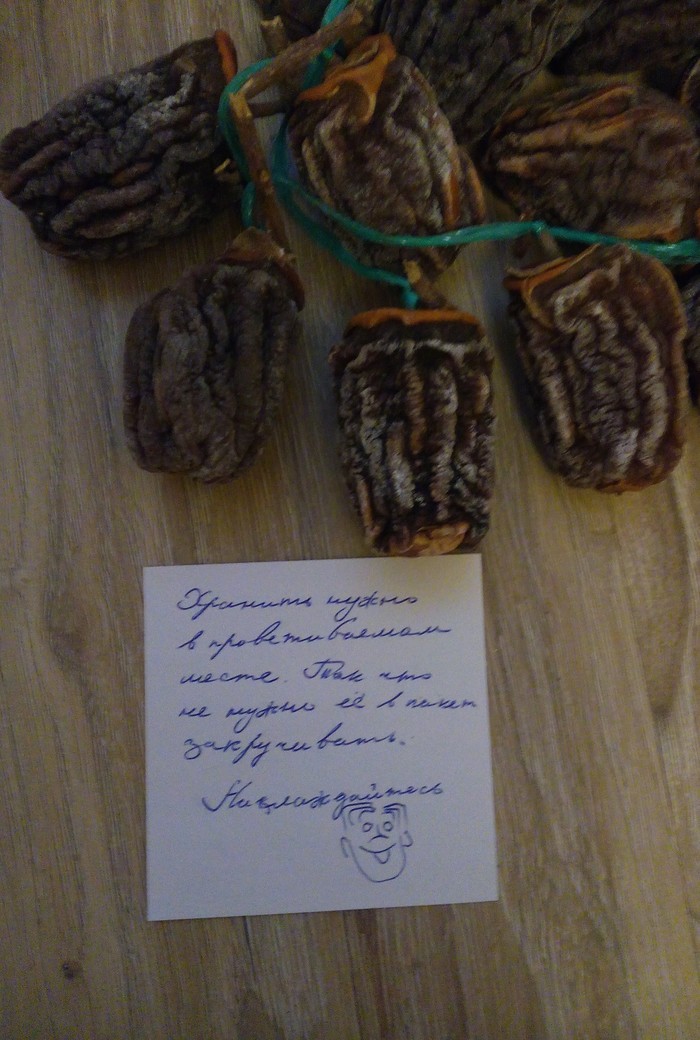 Хранить нужно
в проветиваемом
месте. Так что
не нужно её в пакет
закручивать.
Наслаждайтесь